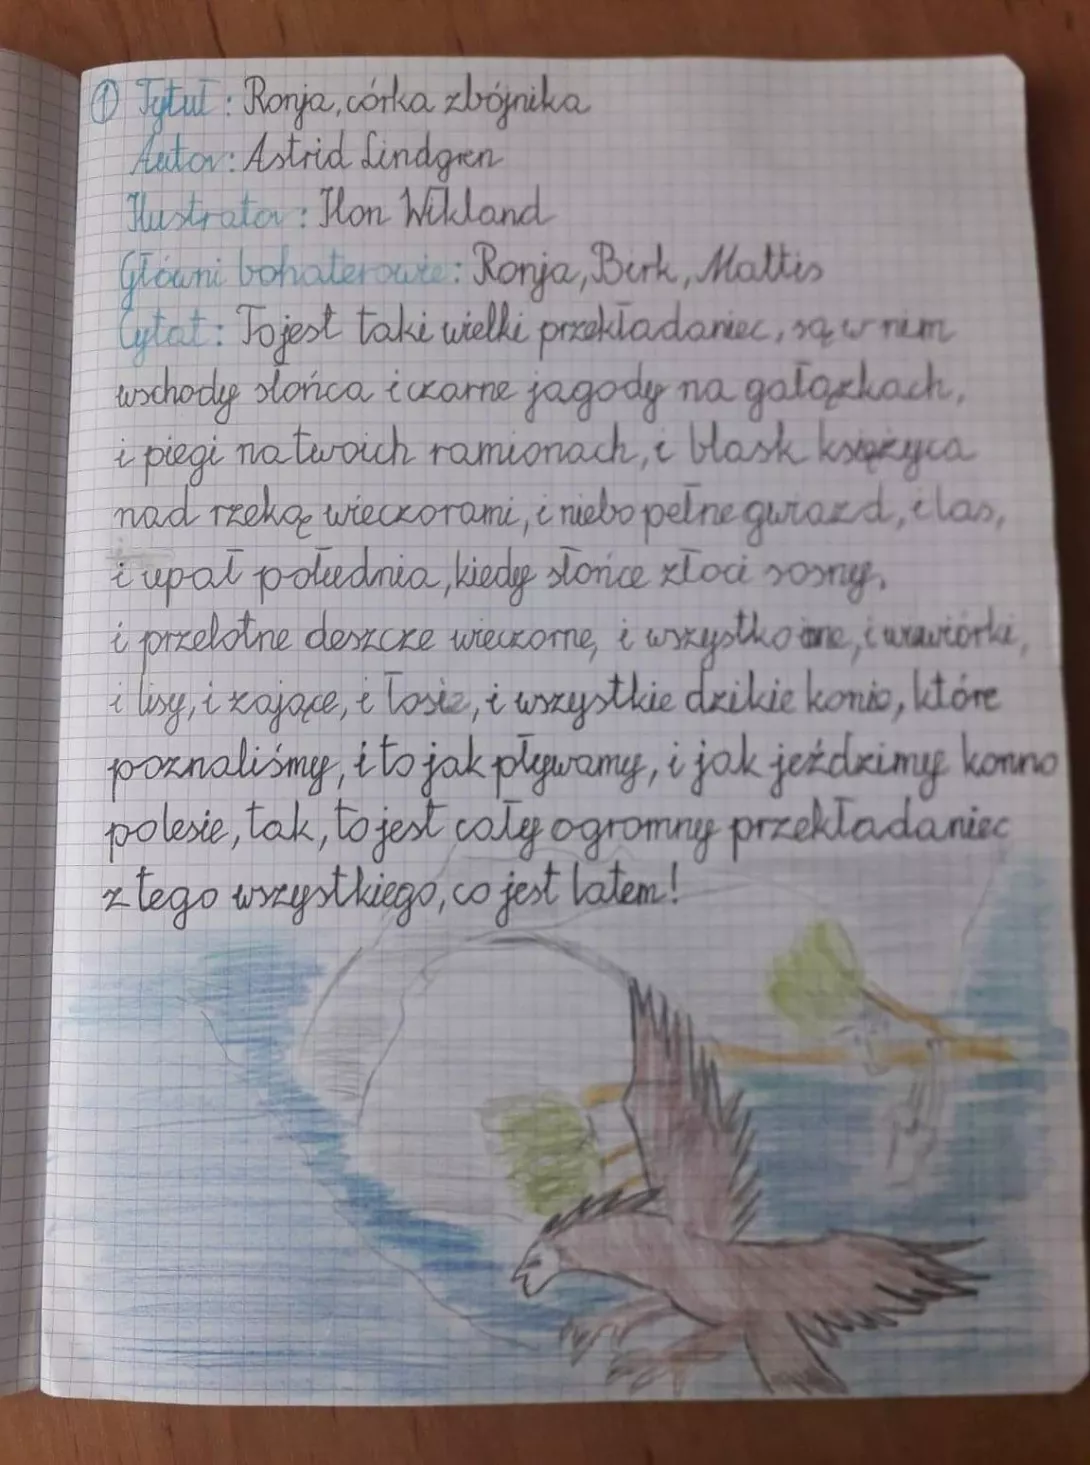 ① Tytuł: Ronja, córka zbójnika
Autor: Astrid Lindgren
Ilustrator: Ilon Wikland
Główni bohaterowie: Ronja, Birk, Mattis
Cytat: To jest taki wielki przekładaniec, są w nim
wschody słońca i czarne jagody na gałązkach,
i piegi na twoich ramionach, i blask księżyca
nad rzeką wieczorami, i niebo pełne gwiazd, i las,
i upał południa, kiedy słońce złoci sosny,
i przelotne deszcze wieczorne, i wszystko inne, i wiewiórki,
i lisy, i zające, i łosie, i wszystkie dzikie konie, które
poznaliśmy, i to jak pływamy, i jak jeździmy konno
po lesie, tak, to jest cały ogromny przekładaniec
z tego wszystkiego, co jest latem!